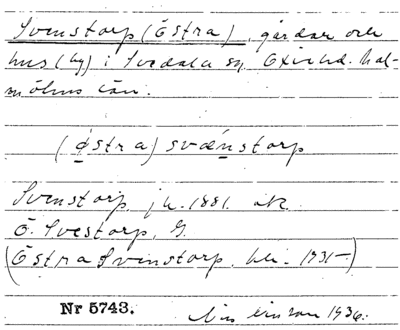 Svenstorp (Östra), gårdar och
hus (by) i Svedala sn, Oxie hd. Mal-
möhus län.
(östra) svænstorp
Svenstorp jb. 1881. ök.
Ö. Svestorp, G.
(Östra Svenstorp. bli. 1931-)
Nr 5743.
1936.